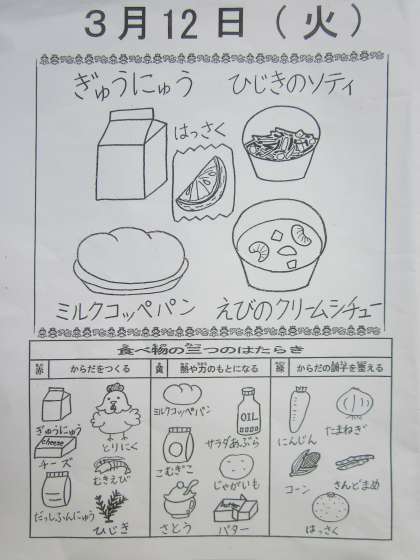 3月12日（火）
ぎゅうにゅう ひじきのソティ
はっさく
ミルクコッペパン えびのクリームシチュー
食べ物の三つのはたらき
赤 からだをつくる 黄 熱や力のもとになる 緑 からだの調子を整える
ぎゅうにゅう
cheese
チーズ
だっしふんにゅう
とりにく
むきえび
ひじき
ミルクコッペパン
こむぎこ
さとう
OIL
サラダあぶら
じゃがいも
バター
にんじん
コーン
たまねぎ
さんどまめ
はっさく